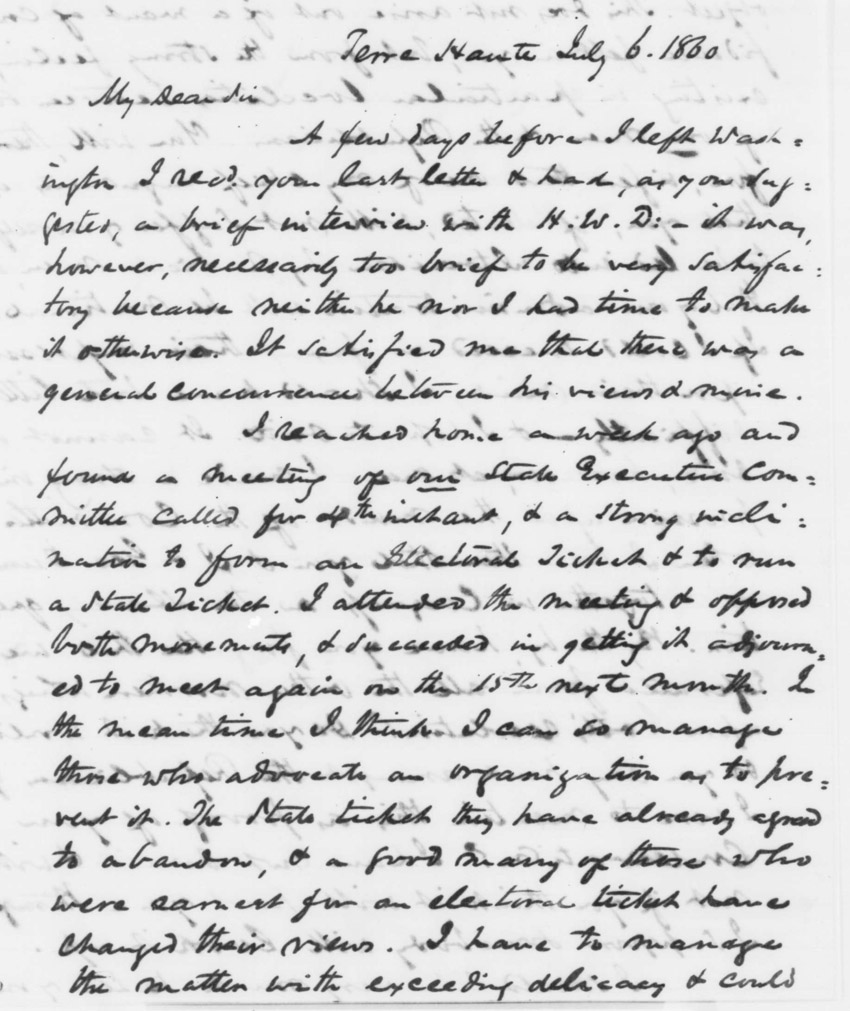 Terre Haute July 6. 1860
My Dear Sir
A few days before I left Wash=
ington I recd. your last letter & had, as you sug=
gested, a brief interview with H. W. D: - it was,
however, necessarily too brief to be very satisfac=
tory because neither he nor I had time to make
it otherwise. It satisfied me that there was a
general concurrence between his views & mine.
I reached home a week ago and
found a meeting of our State Executive Com=
mittee called for 4th instant, & a strong incli=
nation to form an Electoral Ticket & to run
a State Ticket. I attended the meeting & opposed
both movements, & succeeded in getting it adjourn=
ed to meet again on the 15th next month. In
the mean time I think I can so manage
those who advocate an organization as to pre=
vent it. The State ticket they have already agreed
to abandon, & a good many of those who
were earnest for an electoral ticket have
changed their views. I have to manage
the matter with exceeding delicacy & could